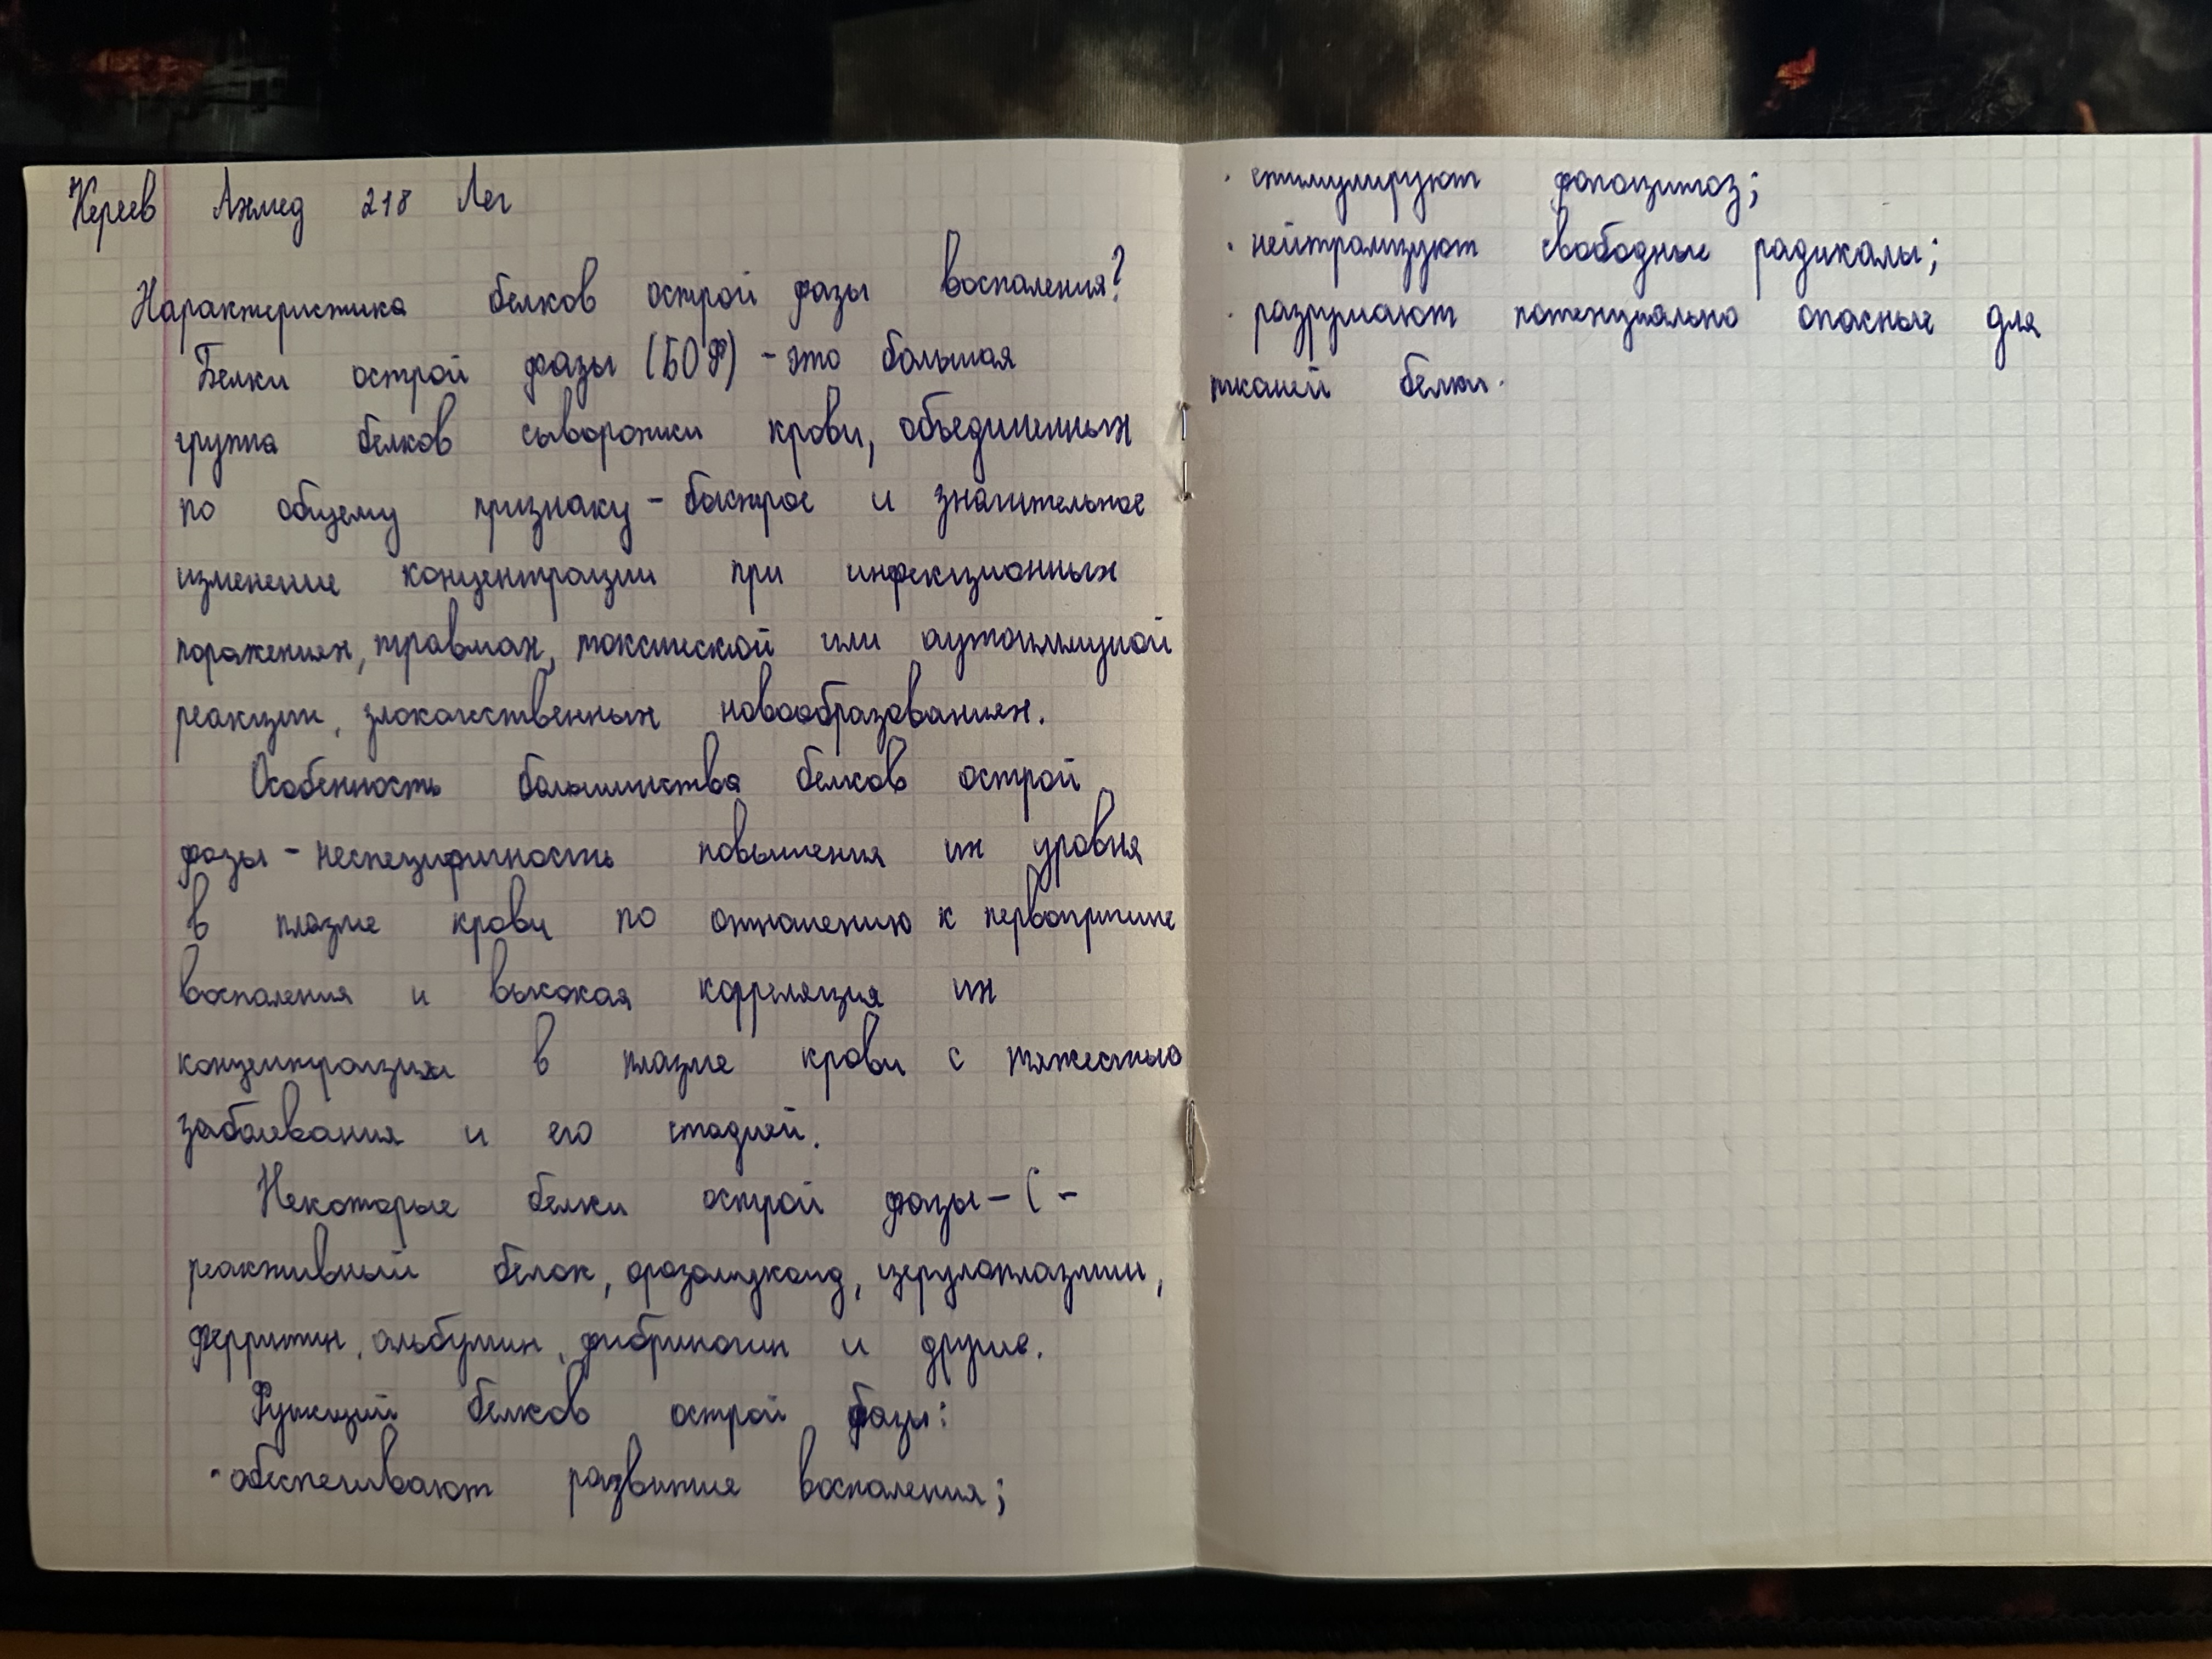 Кереев Ахмед 218 Леч
Характеристика белков острой фазы воспаления?
Белки острой фазы (БОФ) - это большая
группа белков сыворотки крови, объединенных
по общему признаку - быстрое и значительное
изменение концентрации при инфекционных
поражениях, травмах, токсической или аутоиммуной
реакции, злокачественных новообразованиях.
Особенность большинства белков острой
фазы - неспецифичность повышения их уровня
в плазме крови по отношению к первопричине
воспаления и высокая корреляция их
концентрации в плазме крови с тяжестью
заболевания и его стадией.
Некоторые белки острой фазы - С -
реактивный белок, орозомукоид, церулоплазмин,
ферритин, альбумин, фибриноген и другие.
Функций белков острой фазы:
· обеспечивают развитие воспаления;
· стимулируют фагоцитоз;
· нейтрализуют свободные радикалы;
· разрушают потенциально опасные для
тканей белки.